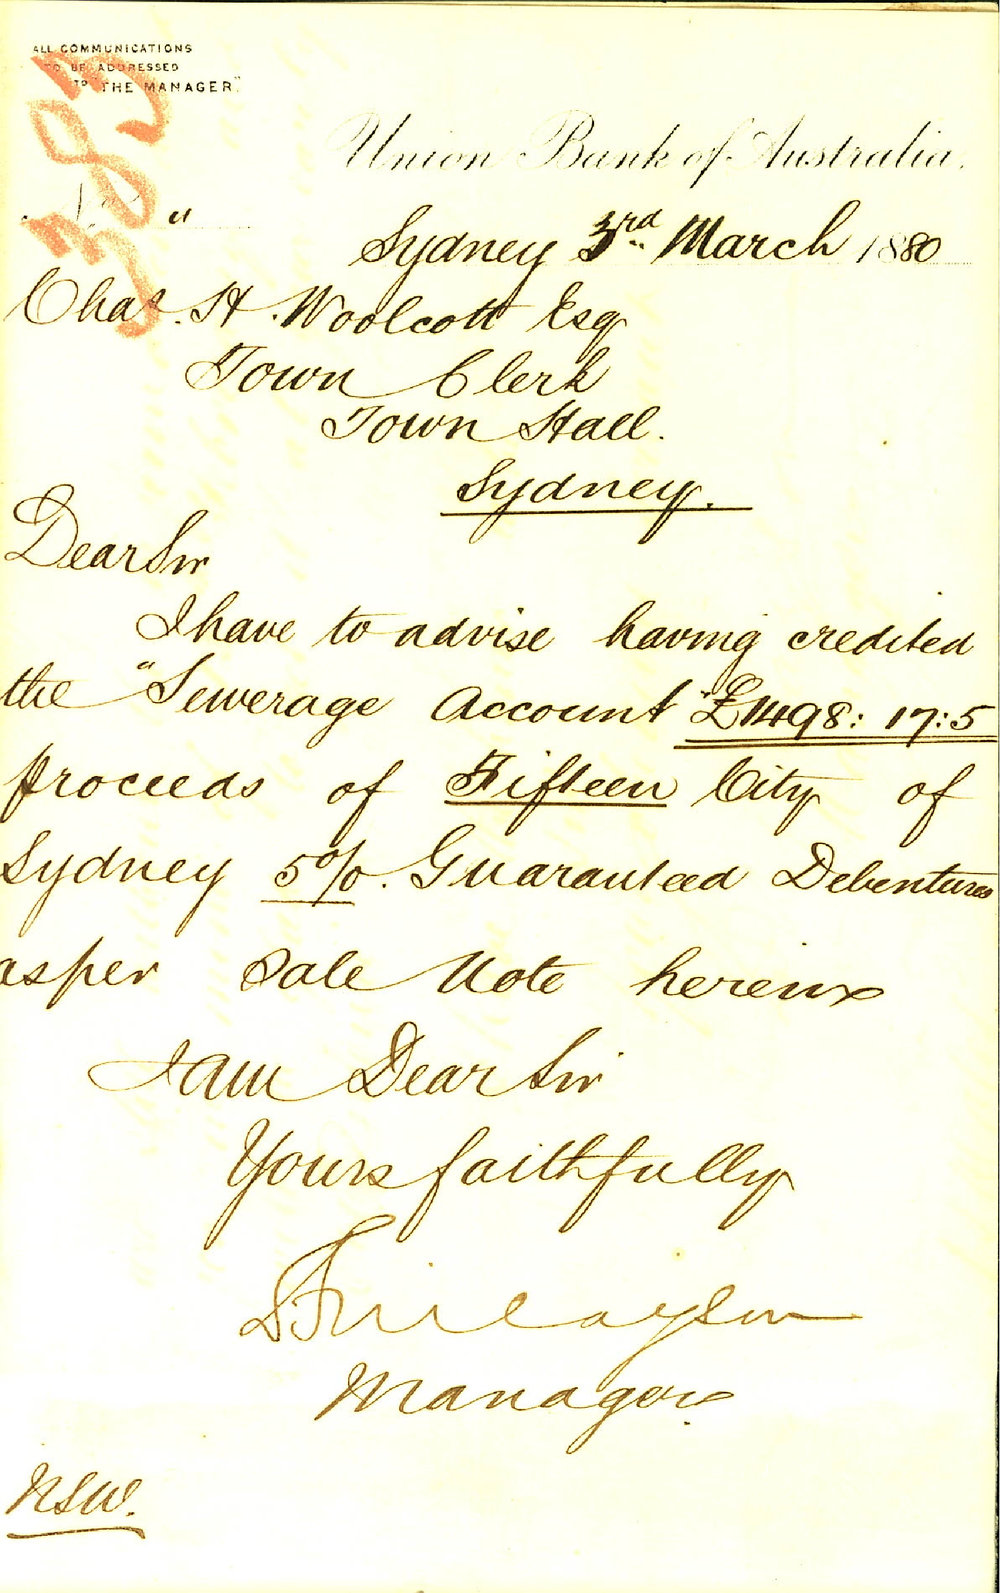 ALL COMMUNICATIONS
TO BE ADDRESSED
TO "THE MANAGER"
383
Union Bank of Australia.
"
Sydney 3rd March 1880
Chas. H. Woolcott Esq
Town Clerk
Town Hall.
Sydney.
Dear Sir
I have to advise having credited
the "Sewerage Account" £1498: 17:5
proceeds of Fifteen City of
Sydney 5%. Guaranteed Debentures
as per Sale Note herein
I am Dear Sir
Yours faithfully
Finlayson
Manager
NSW.